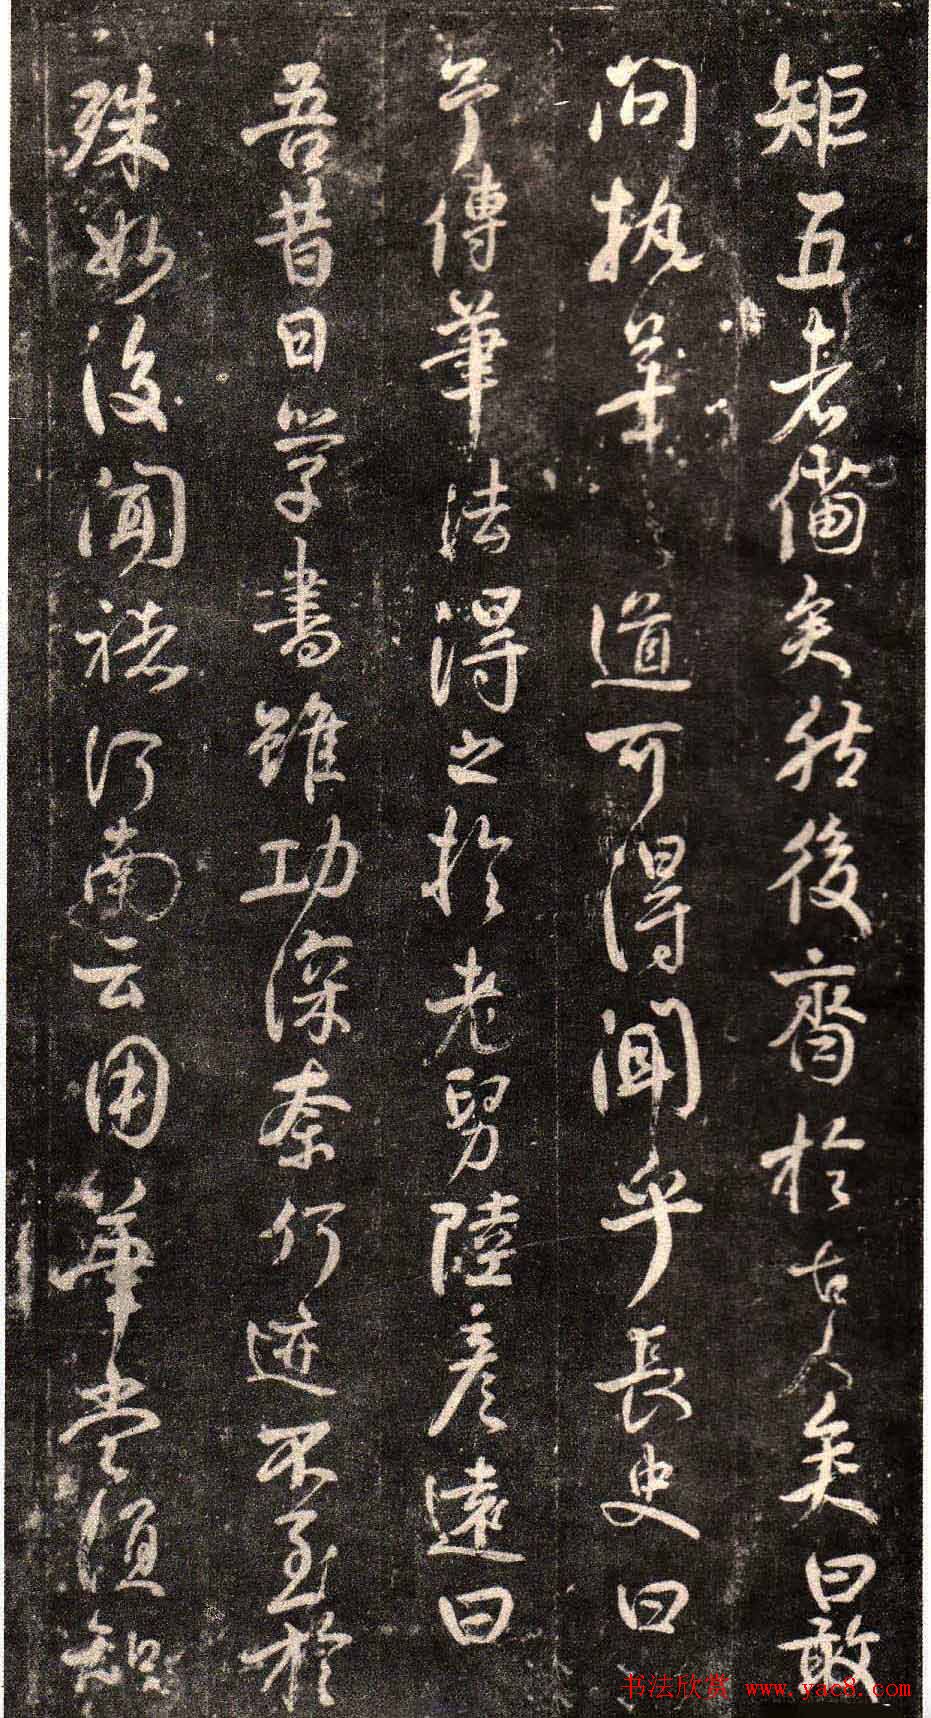 矩五者備矣然後齊於古人矣曰敢
問執筆道可得聞乎長史曰
予傳筆法得之於老舅陸彦遠曰
吾昔日学書雖功深奈何迹不至於
殊妙後聞褚河南云用筆當須知
书法欣赏 www.yac8.com